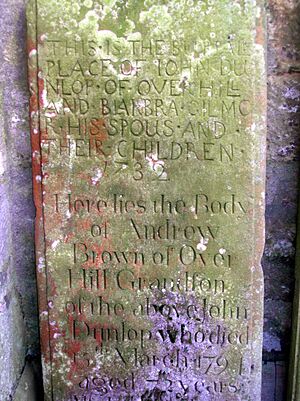 THIS IS THE BURIAL
PLACE OF IOHN DU
NLOP OF OVERHILL
AND BARBRA GILMO
R HIS SPOUS AND
THEIR CHILDREN
1732
Here lies the Body
of Andrew
Brown of Over
Hill Grandſon
of the above John
Dunlop who died
15th March 1794
aged 72 years